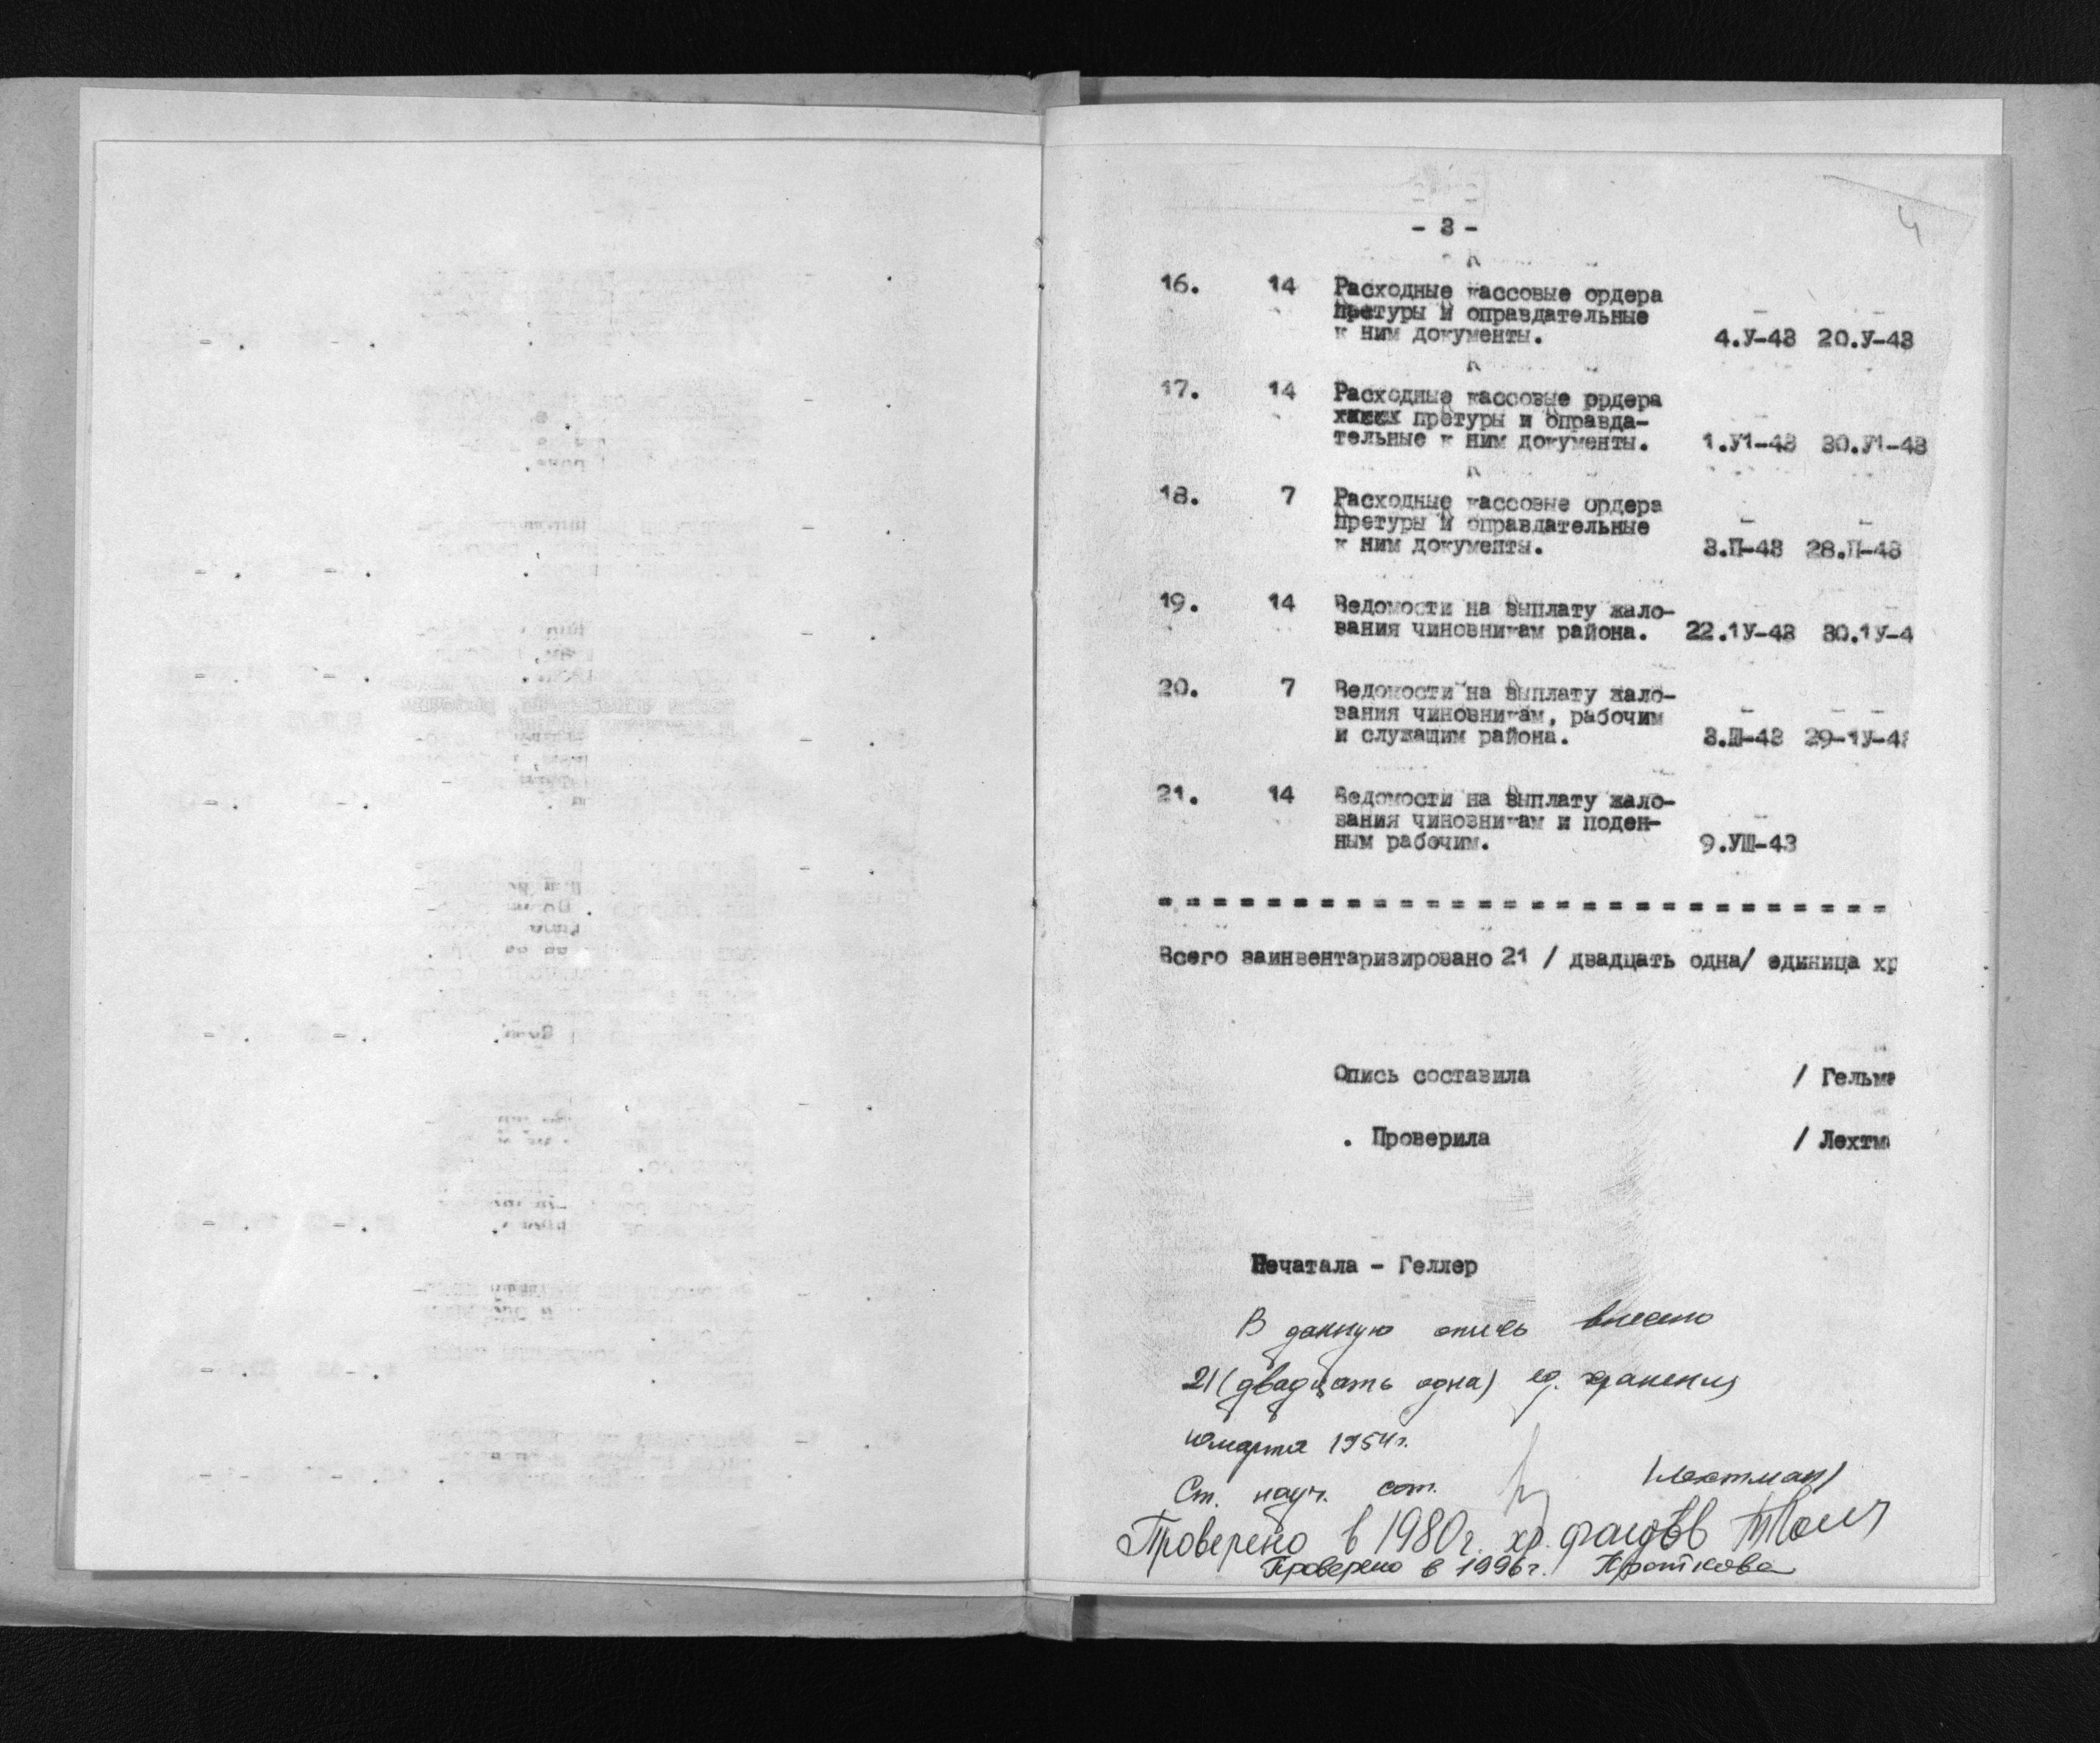 4
- 3 -
16. 14 Расходные кассовые ордера
претуры и оправдательные
к ним документы. 4.У-43 20.У-43
17. 14 Расходные кассовые ордера
претуры и оправда-
тельные к ним документы. 1.У1-43 30.У1-43
18. 7 Расходные кассовые ордера
претуры и оправдательные
к ним документы. 3.П-43 28.П-43
19. 14 Ведомости на выплату жало-
вания чиновникам района. 22.1У-43 30.1У-4
20. 7 Ведомости на выплату жало-
вания чиновникам, рабочим
и служащим района. 3.Ш-43 29-1У-43
21. 14 Ведомости на выплату жало-
вания чиновникам и поден-
ным рабочим. 9.УШ-43
Всего заинвентаризировано 21 / двадцать одна/ единица хр
Опись составила / Гельма
. Проверила / Лехтма
Печатала - Геллер
В данную опись внесено
21 (двадцать одна) ед. хранения
марта 1954г.
Ст. науч. сот. (Лехтман)
Проверено в 1980г. хр. фондов
Проверено в 1996г. Кроткова